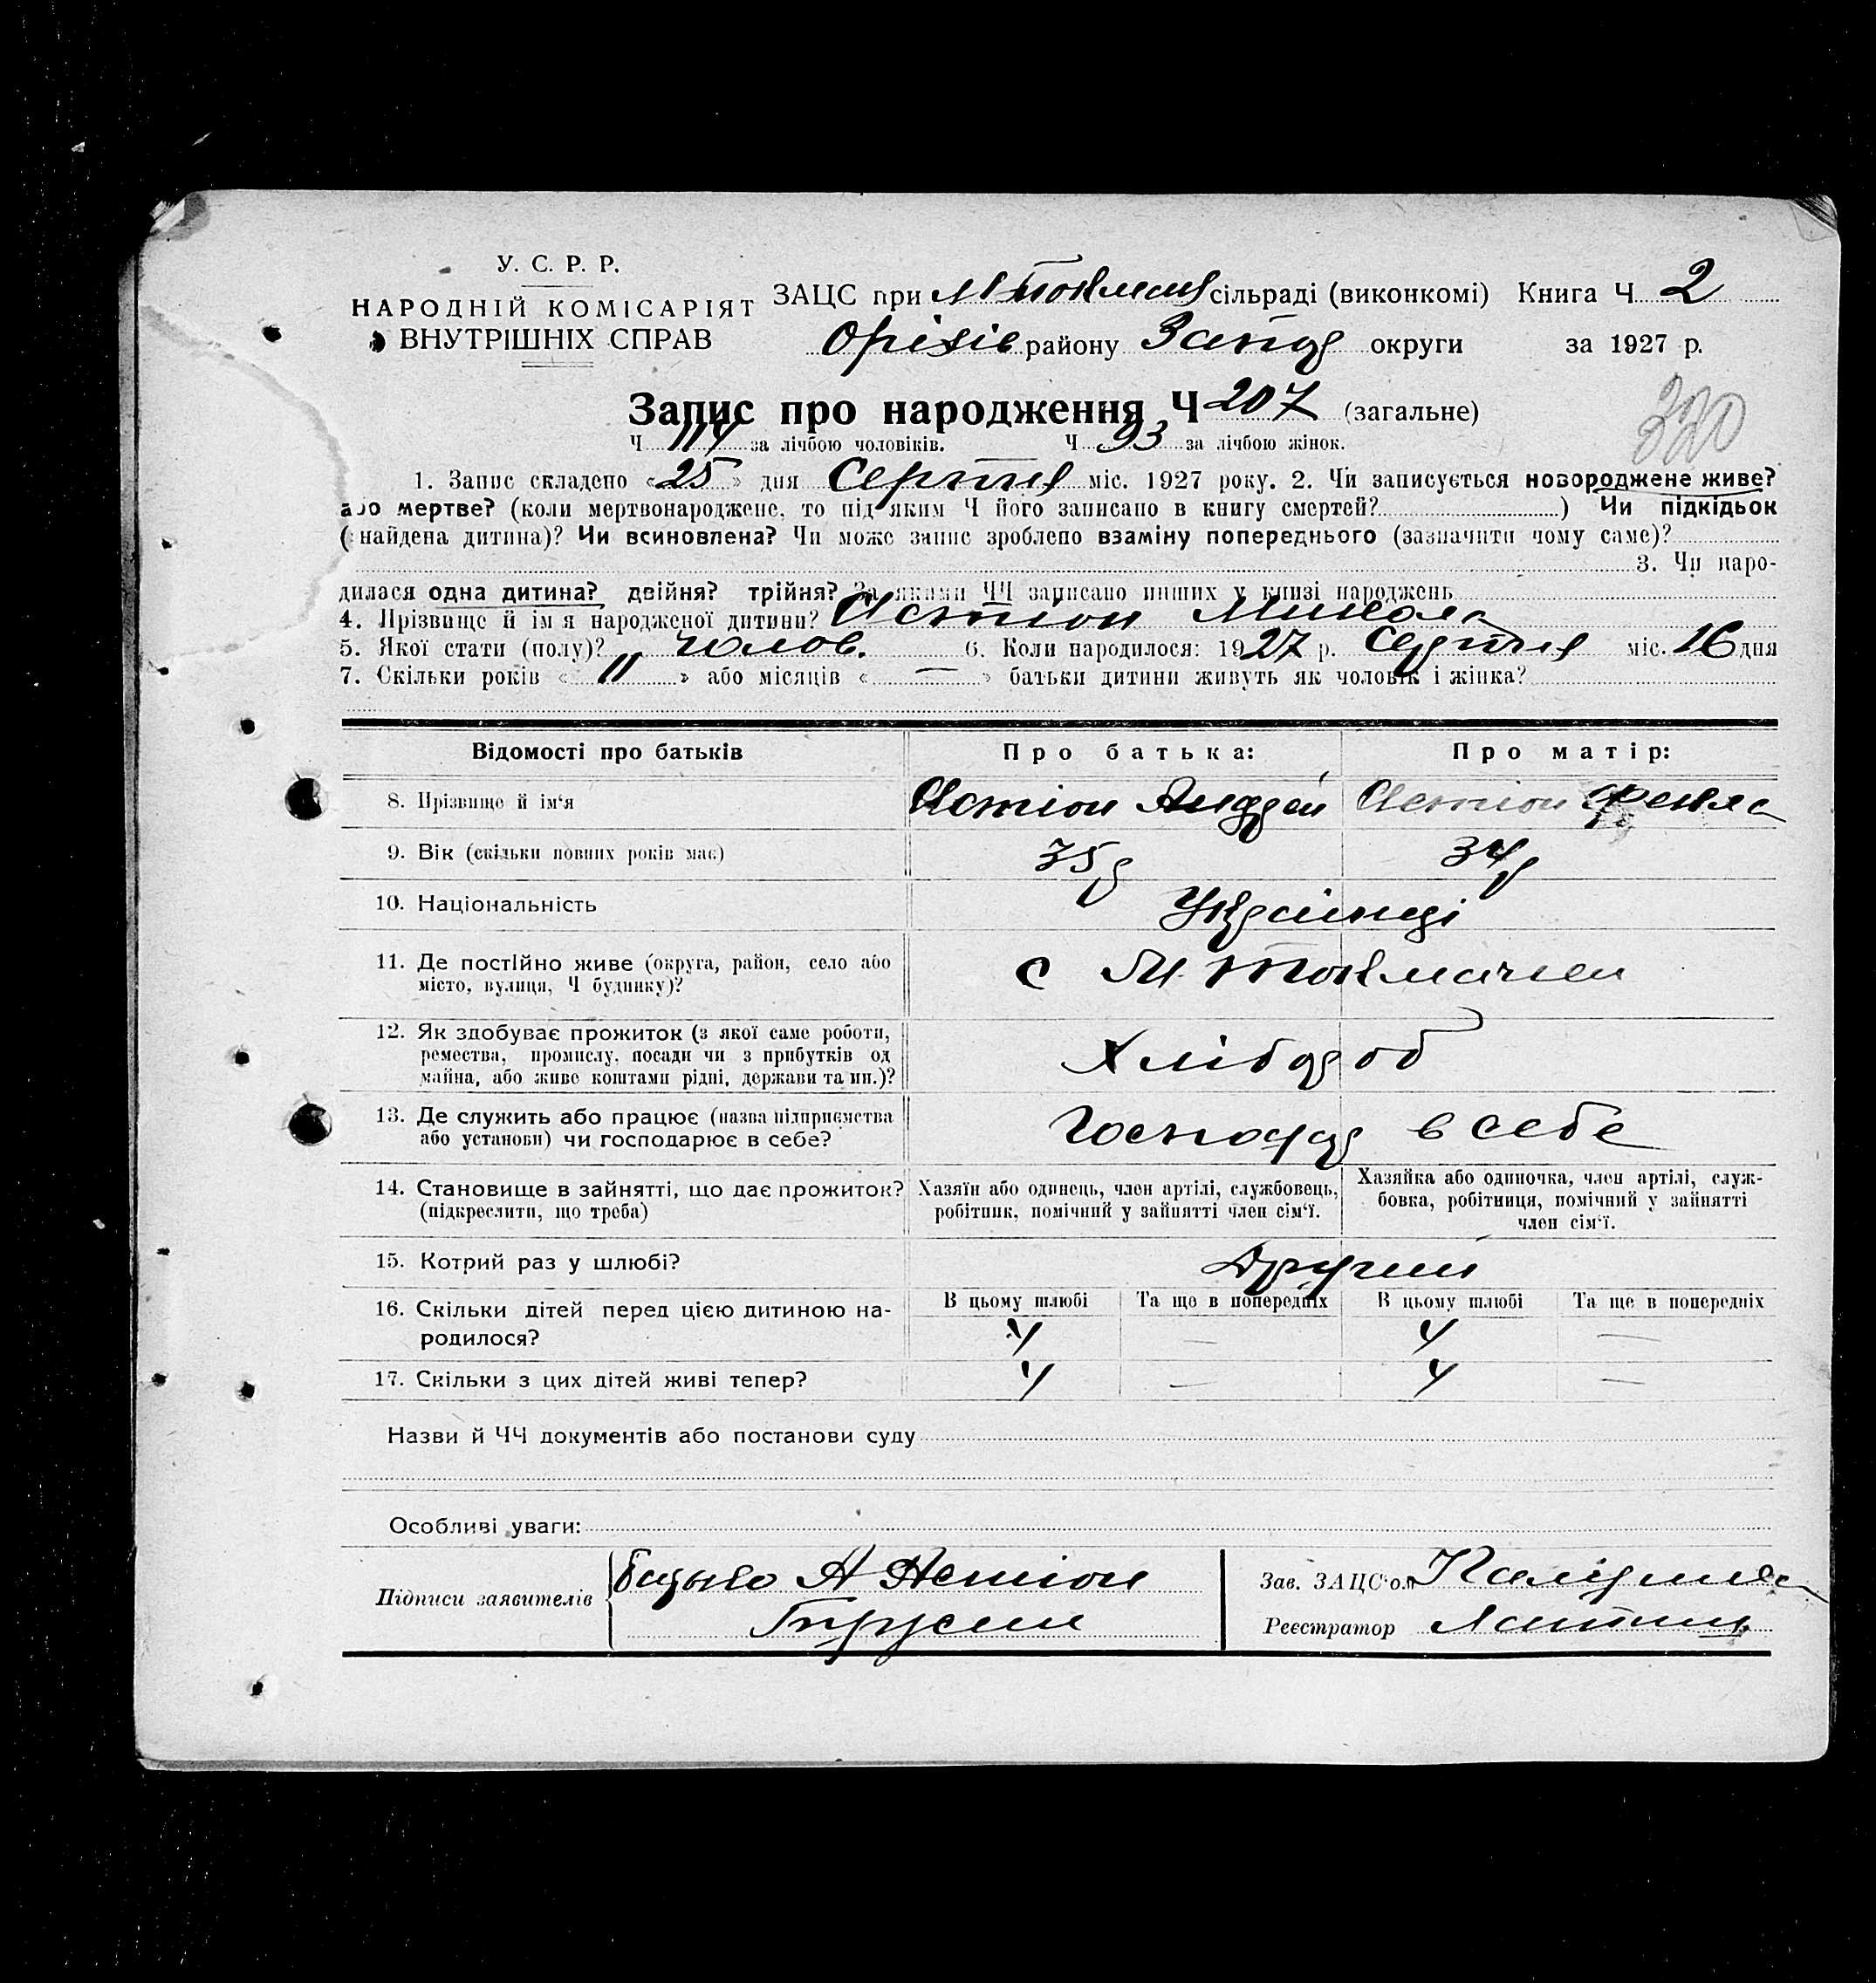 У. С. Р. Р.
НАРОДНІЙ КОМІСАРІЯТ
ВНУТРІШНІХ СПРАВ
ЗАЦС при М Токмац сільраді (виконкомі) Книга Ч 2
Оріхів району Запор округи за 1927 р.
Запис про народження Ч 207 (загальне)
320
Ч 114 за лічбою чоловіків. Ч 93 за лічбою жінок.
1. Запис складено «25» дня Серпня міс. 1927 року. 2. Чи записується новороджене живе?
або мертве? (коли мертвонароджене, то під яким Ч його записано в книгу смертей? ) Чи підкідьок
(знайдена дитина)? Чи всиновлена? Чи може запис зроблено взаміну попереднього (зазначити чому саме)?
3. Чи наро-
дилася одна дитина? двійня? трійня? За якими ЧЧ записано инших у книзі народжень
4. Прізвище й ім'я народженої дитини? Микола
5. Якої стати (полу)? чолов. 6. Коли народилося: 1927 р. Серпня міс. 16 дня
7. Скільки років «11» або місяців «—» батьки дитини живуть як чоловік і жінка?
Відомості про батьків Про батька: Про матір:
8. Прізвище й ім'я Андрей
9. Вік (скільки повних років має) 35 р 34 р
10. Національність Українці
11. Де постійно живе (округа, район, село або
місто, вулиця, Ч будинку)?
с М. Токмачки
12. Як здобуває прожиток (з якої саме роботи,
ремества, промислу, посади чи з прибутків од
майна, або живе коштами рідні, держави та ин.)?
Хлібороб
13. Де служить або працює (назва підприємства
або установи) чи господарює в себе?
Господар в себе
14. Становище в зайнятті, що дає прожиток?
(підкреслити, що треба)
Хазяїн або одинець, член артілі, службовець,
робітник, помічний у зайнятті член сім'ї.
Хазяйка або одиночка, член артілі, служ-
бовка, робітниця, помічний у зайнятті
член сім'ї.
15. Котрий раз у шлюбі? Другий
16. Скільки дітей перед цією дитиною на-
родилося?
В цьому шлюбі Та ще в попередніх В цьому шлюбі Та ще в попередніх
4 — 4 —
17. Скільки з цих дітей живі тепер? 4 — 4 —
Назви й ЧЧ документів або постанови суду
Особливі уваги:
Підписи заявителів
Батько А
Зав. ЗАЦС'ом
Реєстратор